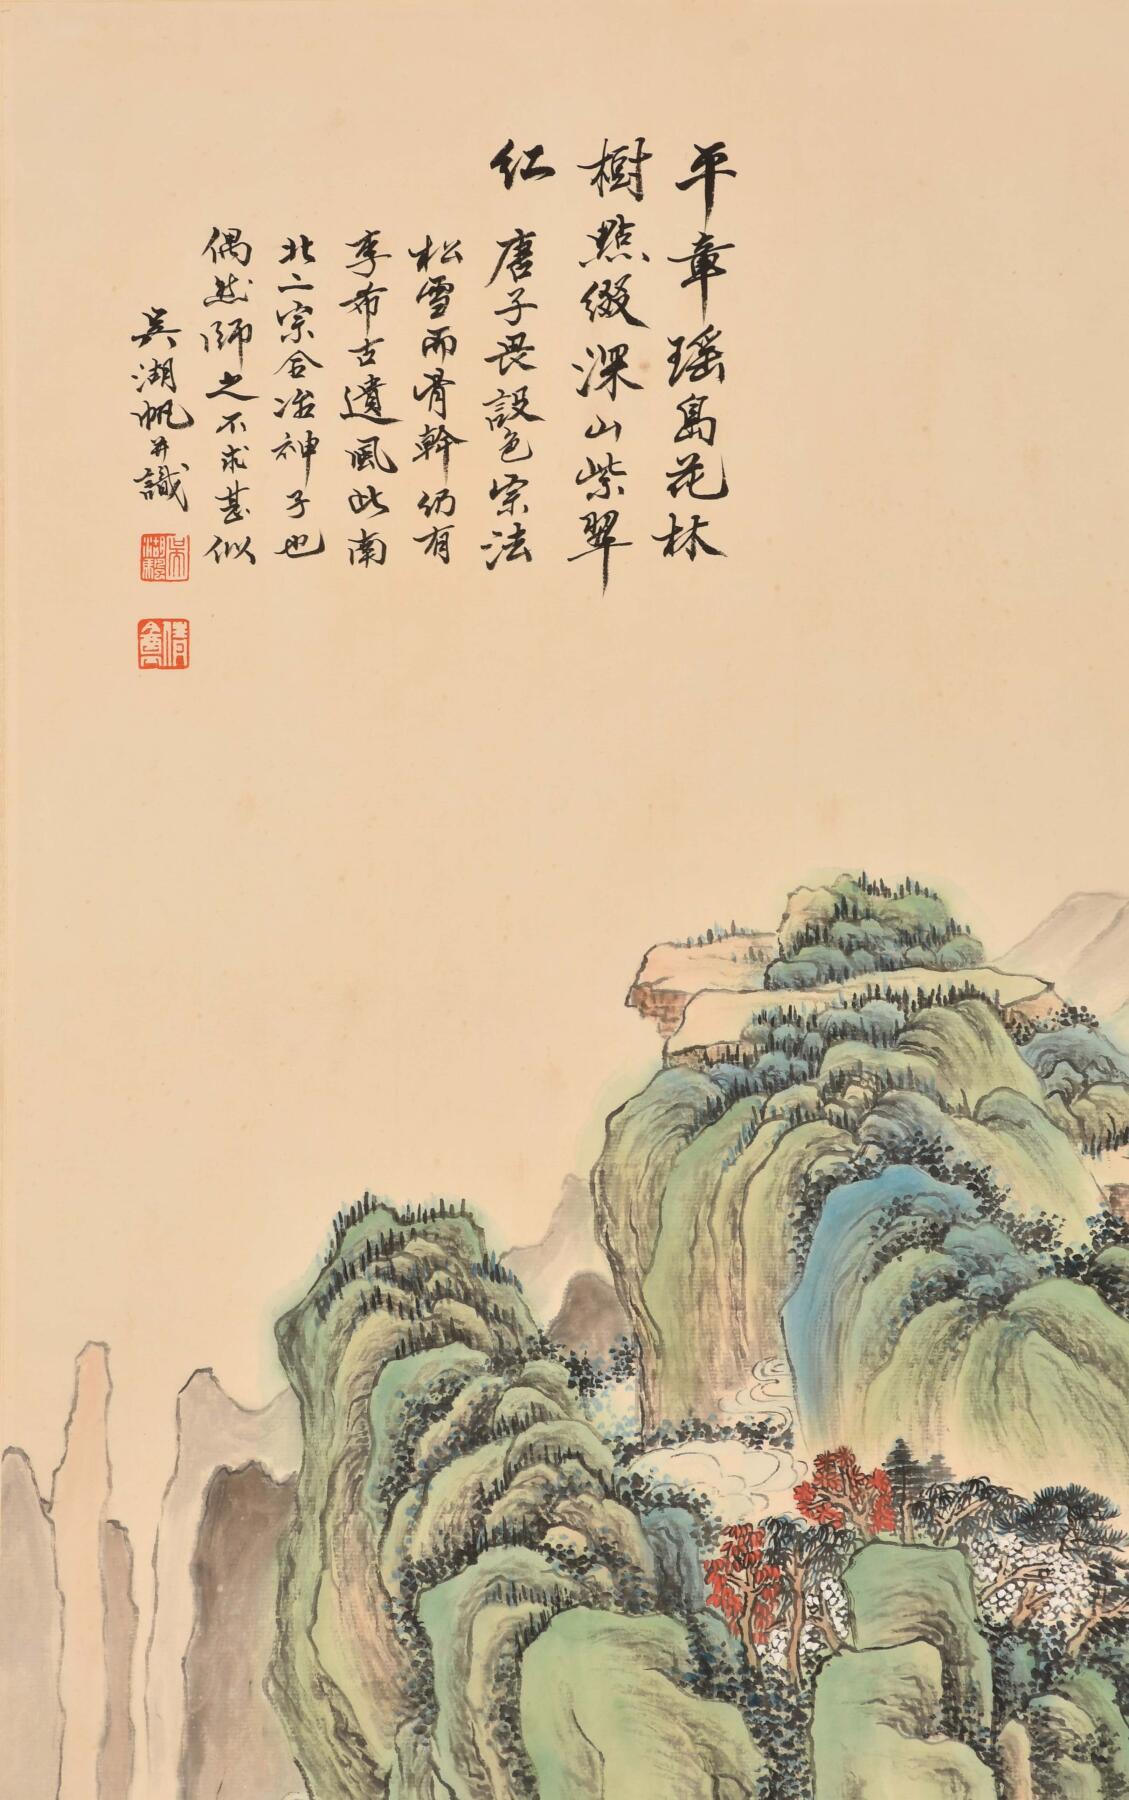 平章瑶島花林
樹點綴深山紫翠
红 唐子畏設色宗法
松雪而骨幹仍有
李希古遺風此南
北二宗合冶神子也
偶然師之不求甚似
吳湖帆并識
吴湖颿
倩盦